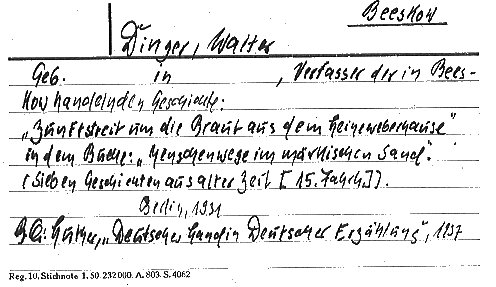 Beeskow
Dinger, Walter
Geb. in , Verfasser der in Bees-
kow handelnden Geschichte:
„Zunftstreit um die Braut aus dem Leineweberhause"
in dem Buche: „Menschenwege im märkischen Sand".
(Sieben Geschichten aus alter Zeit [15. Jahrh.]).
Berlin, 1931
Luther, „Deutsches Land in Deutscher Erzählung", 1937
Reg. 10. Stichnote 1. 50. 232000. A. 803. S. 4062